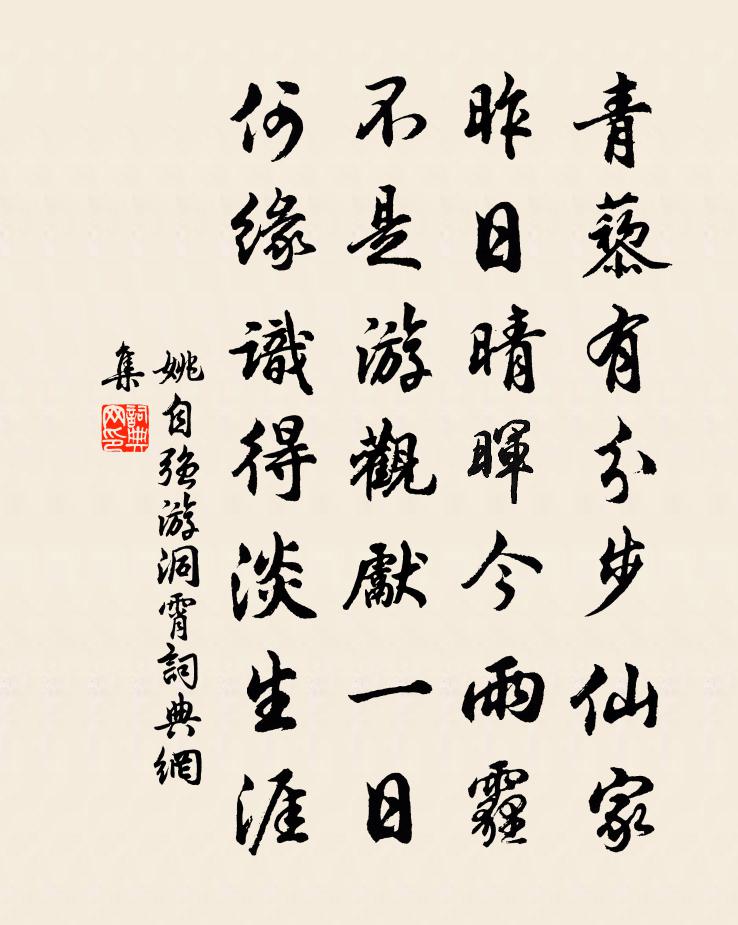 青藜有分步仙家
昨日晴暉今雨霾
不是游觀獻一日
何緣識得淡生涯
姚自強游洞霄詞典網
集
詞典
网印